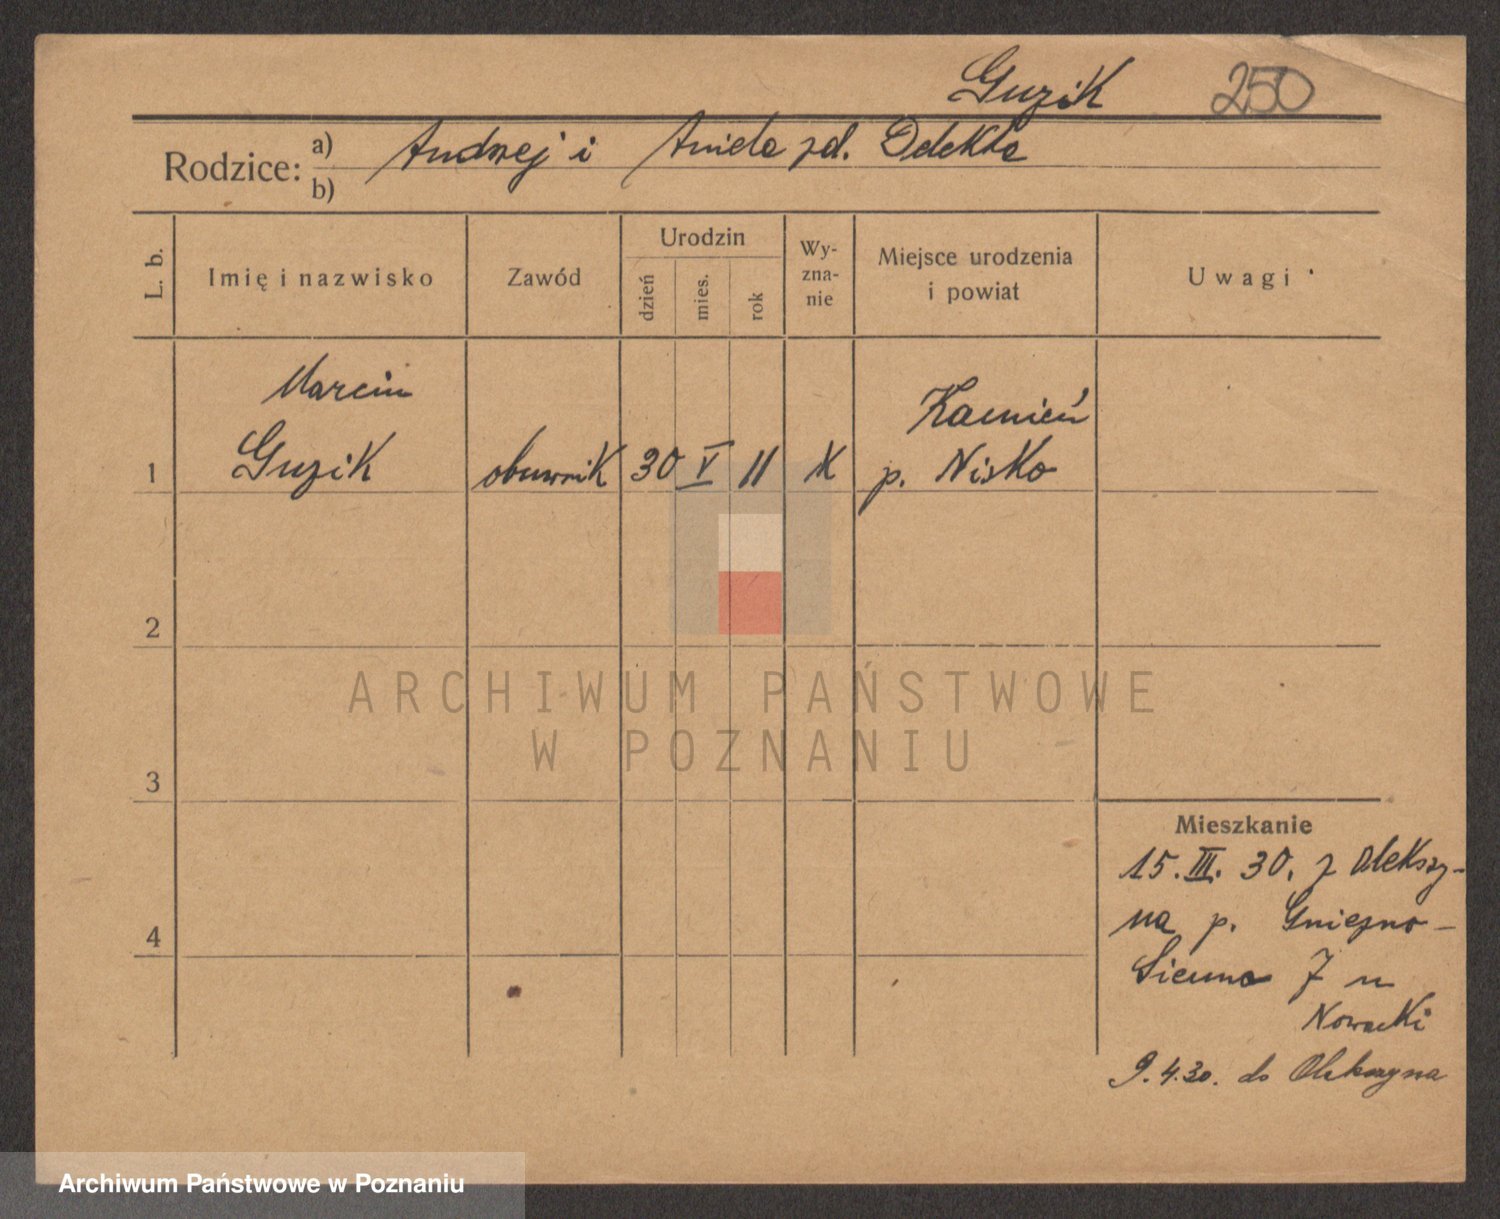 Guzik 250
Rodzice: a) Andrzej i Aniela zd. Delekta
b)
L. b. Imię i nazwisko Zawód Urodzin dzień mies. rok Wy-zna-nie Miejsce urodzenia i powiat Uwagi
Marcin Kamień
1 Guzik obuwnik 30 V 11 K p. Nisko
2
ARCHIWUM PAŃSTWOWE
W POZNANIU
3
Mieszkanie
15. III. 30. z Olekszy-
na p. Gniezno -
4
Sienna 7 u
Nowacki
9.4.30. do Olekszyna
Archiwum Państwowe w Poznaniu